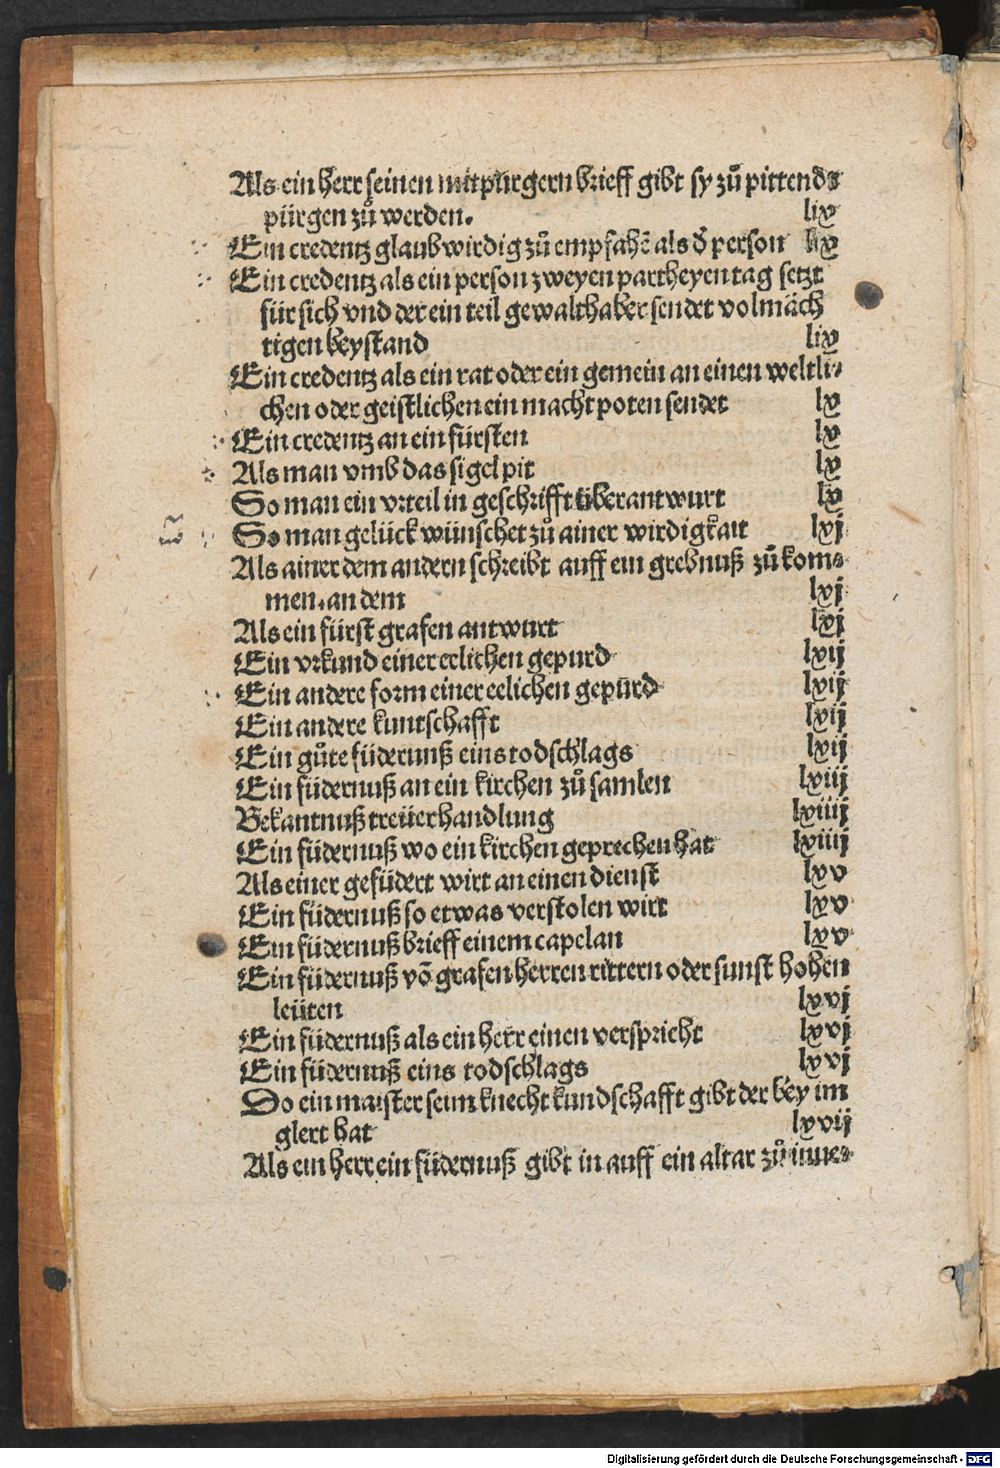 Als ein herr seinen mitpürgern brieff gibt sy zů pittend
pürgen zů werden. lix
Ein credentz glaubwirdig zů empfahẽ als ď person lix
Ein credentz als ein person zweyen partheyen tag setzt
für sich vnd der ein teil gewalthaber sendet volmäch
tigen beystand lix
Ein credentz als ein rat oder ein gemein an einen weltli⸗
chen oder geistlichen ein macht poten sendet lx
Ein credentz an ein fürsten lx
Als man vmb das sigel pit lx
So man ein vrteil in geschrifft überantwurt lx
So man gelück wünschet zů ainer wirdigkait lxj
Als ainer dem andern schreibt auff ein grebnuß zů kom⸗
men. an dem lxj
Als ein fürst grafen antwurt lxj
Ein vrkund einer erlichen gepurd lxij
Ein andere form einer eelichen gepurd lxij
Ein andere kuntschafft lxij
Ein gůte füdernuß eins todschlags lxij
Ein füdernuß an ein kirchen zů samlen lxiij
Bekantnuß treüer handlung lxiiij
Ein füdernuß wo ein kirchen geprechen hat lxiiij
Als einer gefüdert wirt an einen dienst lxv
Ein füdernuß so etwas verstolen wirt lxv
Ein füdernuß brieff einem capelan lxv
Ein füdernuß võ grafen herren rittern oder sunst hohen
leüten lxvj
Ein füdernuß als ein herr einen verspricht lxvj
Ein füdernuß eins todschlags lxvj
Do ein maister seim knecht kundschafft gibt der bey im
glert hat lxvij
Als ein herr ein füdernuß gibt in auff ein altar zů inue⸗
Digitalisierung gefördert durch die Deutsche Forschungsgemeinschaft - DFG